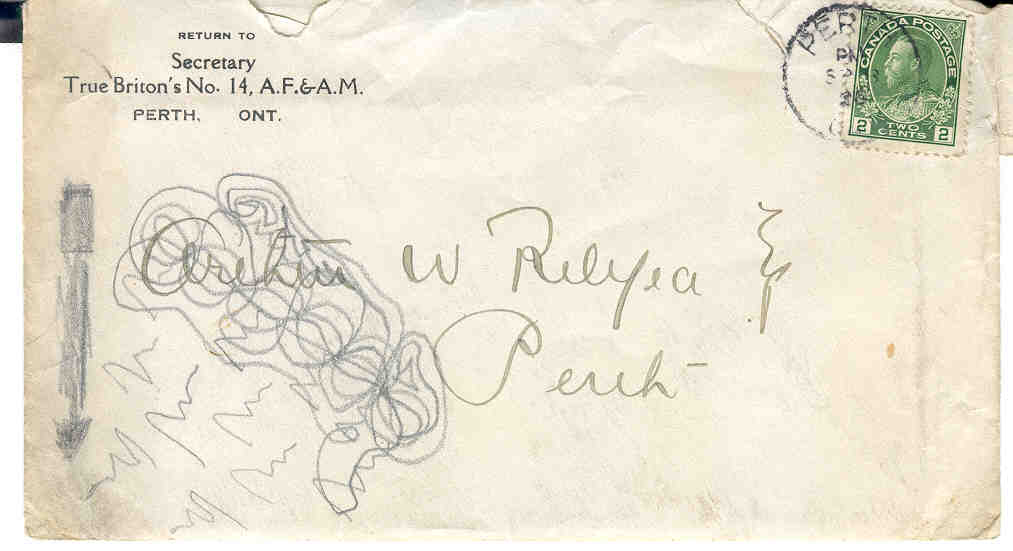 RETURN TO
Secretary
True Briton's No. 14, A.F.&A.M.
PERTH, ONT.
PERT
CANADA POSTAGE
2 TWO CENTS 2
Arthur W Relyea Esq
Perth